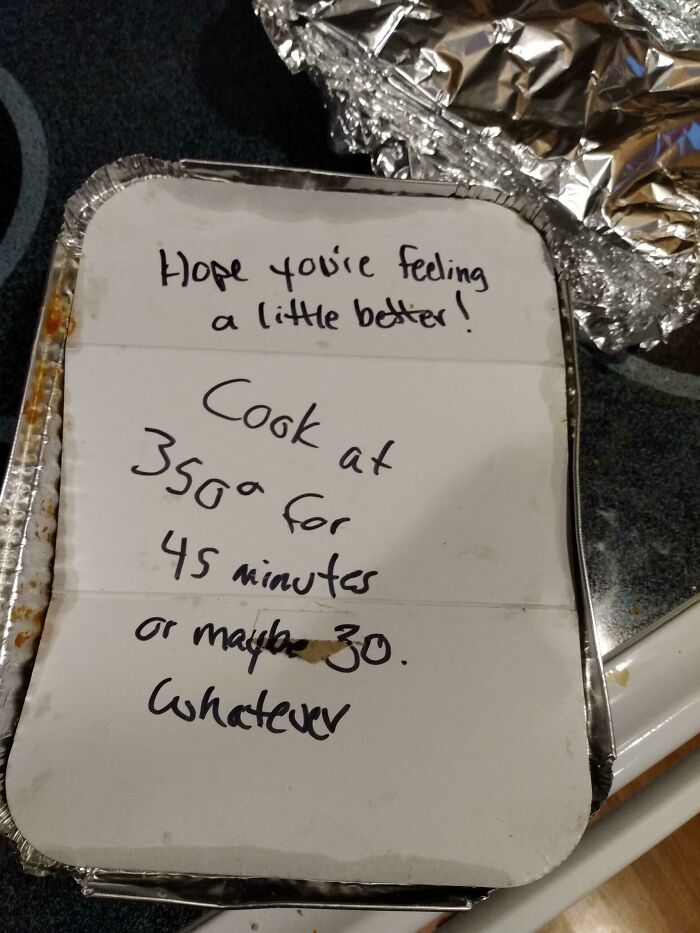 Hope you're feeling
a little better!
Cook at
350° for
45 minutes
or maybe 30.
Whatever